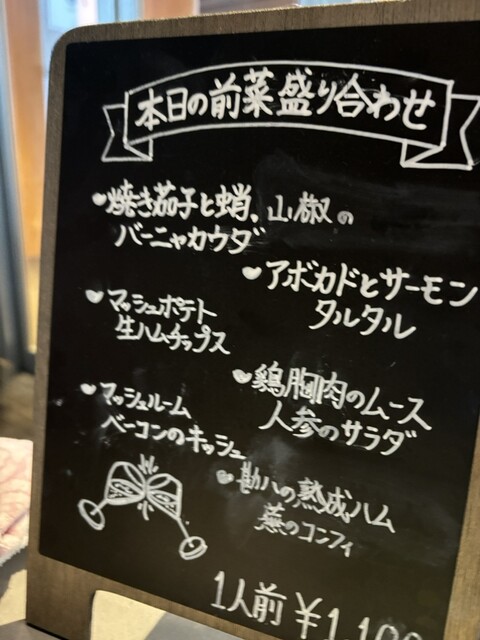 本日の前菜盛り合わせ
焼き茄子と蛸、山椒の
バーニャカウダ
アボカドとサーモン
タルタル
マッシュポテト
生ハムチップス
鶏胸肉のムース
人参のサラダ
マッシュルーム
ベーコンのキッシュ
勘八の熟成ハム
蕪のコンフィ
1人前 ¥1,100